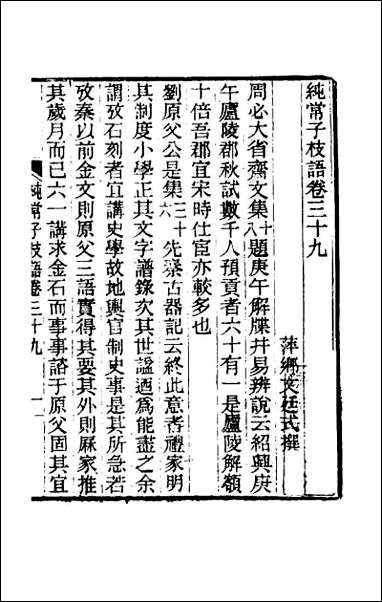 純常子枝語卷三十九
萍鄉文廷式撰
周必大省齋文集十八題庚午解牒幷易辨說云紹興庚
午廬陵郡秋試數千人預貢者六十有一是廬陵解額
十倍吾郡宜宋時仕宦亦較多也
劉原父公是集三十六先秦古器記云終此意者禮家明
其制度小學正其文字譜錄次其世諡迺爲能盡之余
謂攷石刻者宜講史學故地輿官制史事是其所急若
攷秦以前金文則原父三語實得其要其外則厤家推
其歲月而已六一講求金石而事事諮于原父固其宜
純常子枝語卷三十九
一